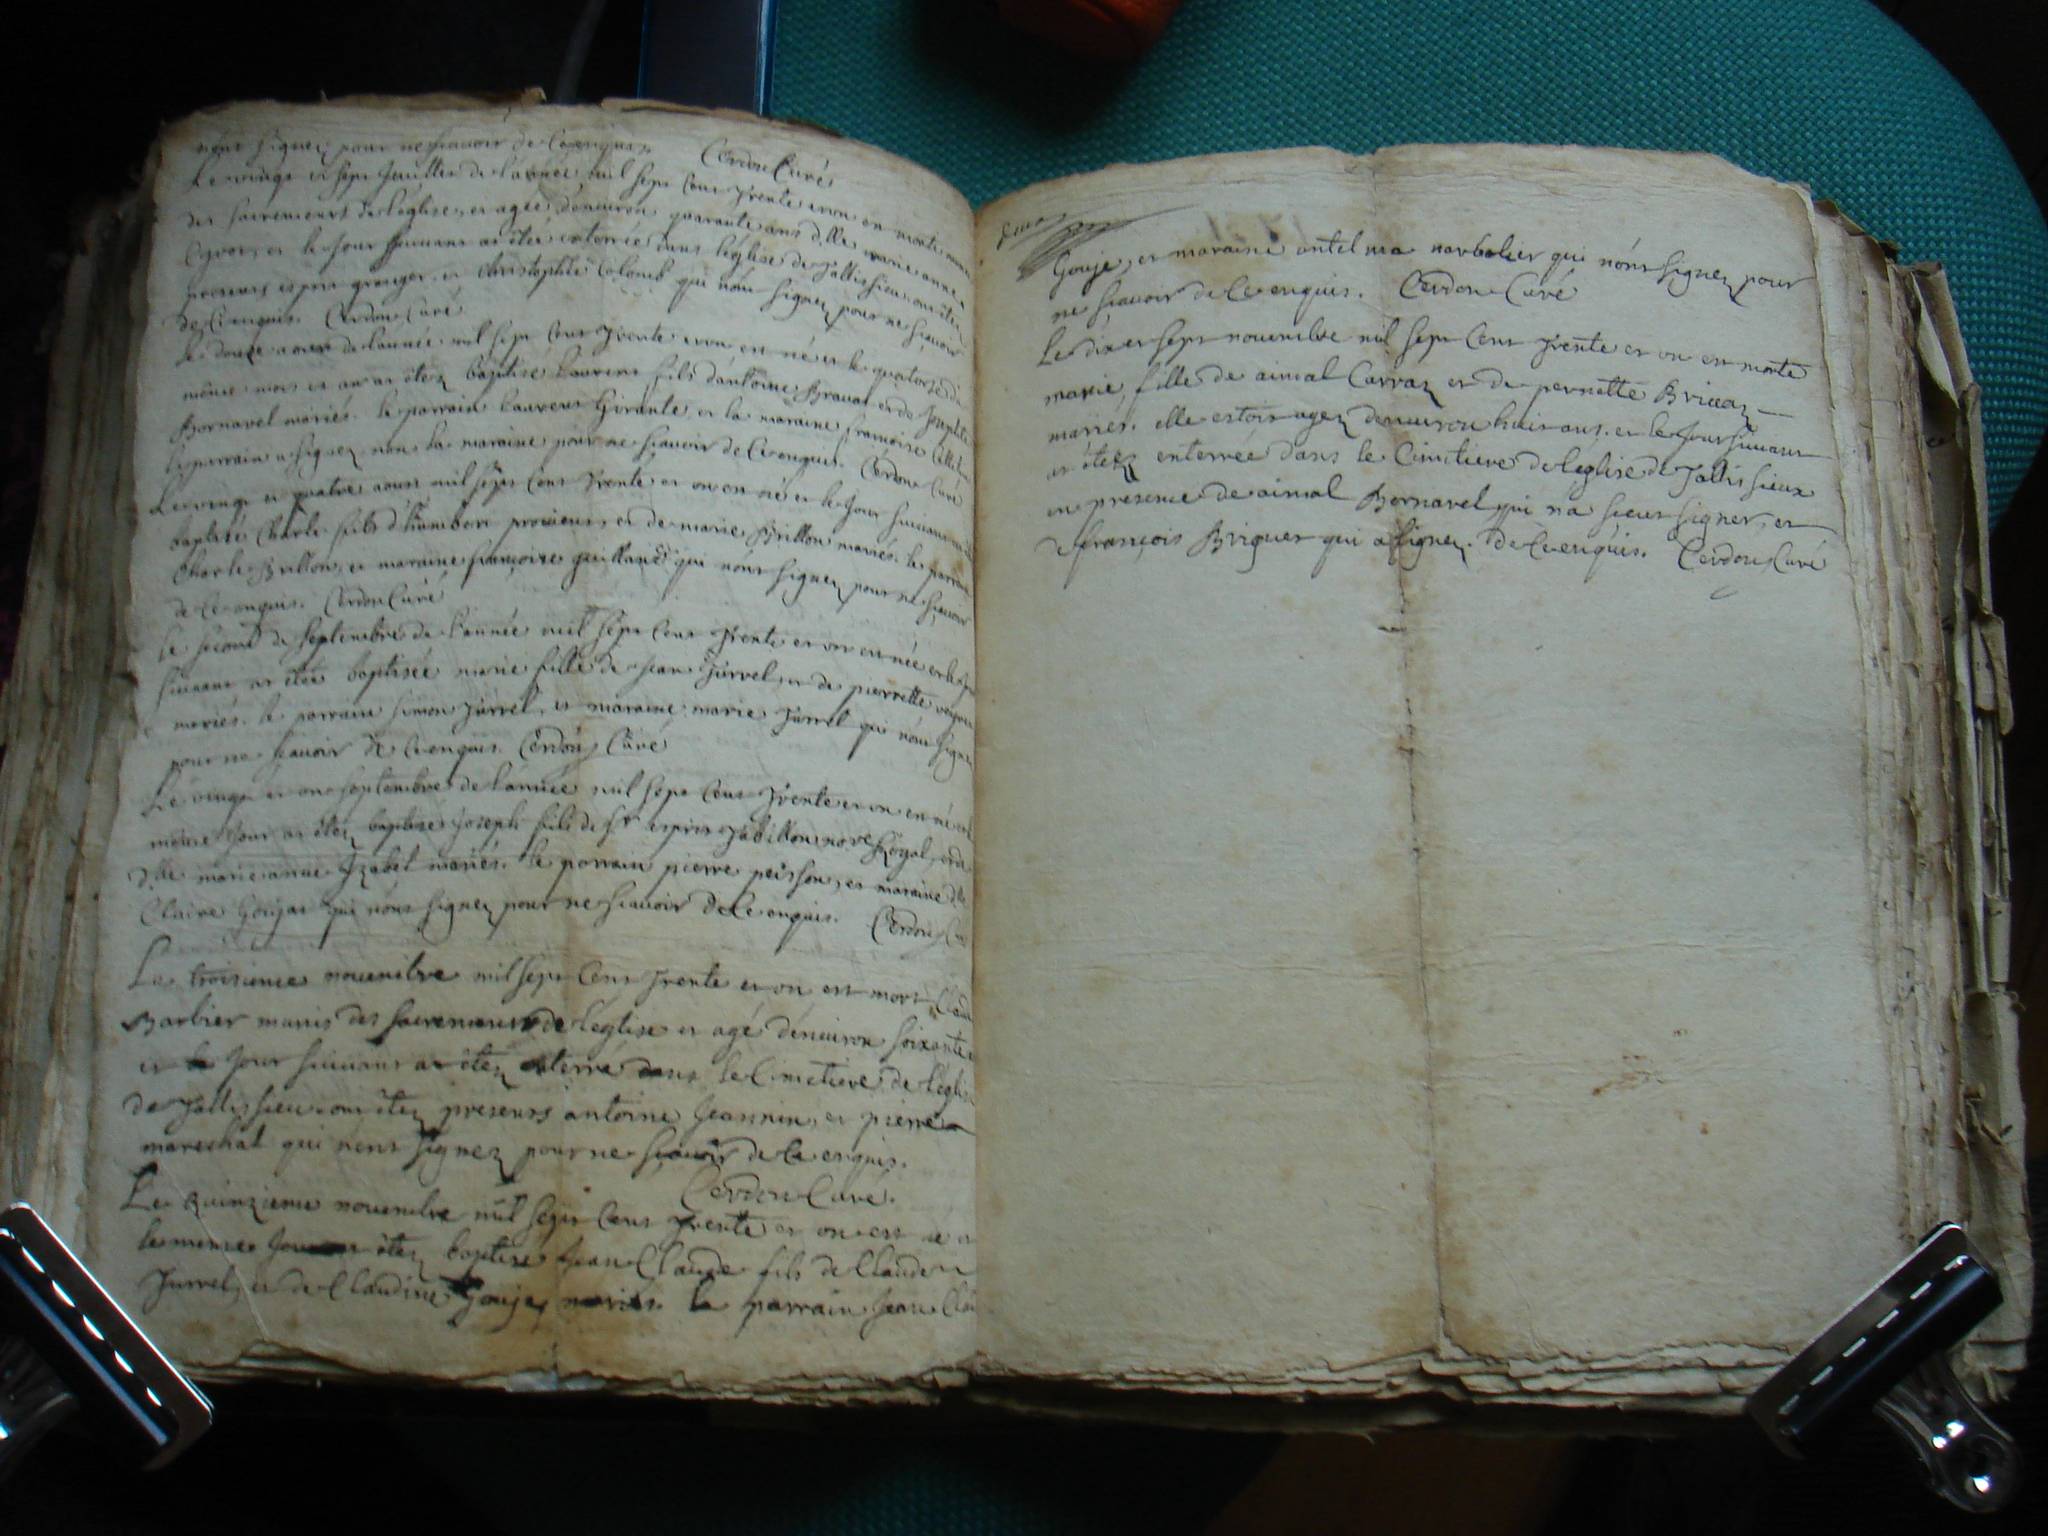 n'ont signez pour ne scavoir de ce enquis. Cerdon Curé
Le vingt et sept Juillet de l'année mil sept cent trente et on est morte munie
des sacrements de l'église, et agée d'environ quarante ans dlle marie anne
et le jour suivant at étée enterrée dans l'église de Jallissieu ont étez
presents esprit granger et Christophle Colomb qui n'ont signez pour ne scavoir
de ce enquis. Cerdon Curé
Le douze aoust de l'année mil sept cent trente et on est né et le quatorze du
même mois et an at étez baptisé Laurent fils d'antoine Bravat et de Josephte
Bornavel mariés. le parrain Laurent Girante, et la maraine francoise
le parrain a signez non la maraine pour ne scavoir de ce enquis. Cerdon Curé
Le vingt et quatre aoust mil sept cent trente et on est né et le jour suivant
baptisé Charle fils d'humbert et de marie Brillon mariés. le parrain
Charle Brillon, et maraine françoise qui n'ont signez pour ne scavoir
de ce enquis. Cerdon Curé
Le second de septembre de l'année mil sept cent trente et on est née et le jour
suivant at étée baptisée marie fille de Jean Jurrel, et de pierrette
mariés. le parrain simon Jurrel, et maraine marie Jurrel qui n'ont signez
pour ne scavoir de ce enquis. Cerdon Curé
Le vingt et on septembre de l'année mil sept cent trente et on est né et le
même jour at étez baptisé Joseph fils de sr esprit Tabillon nore Royal, et de
dlle marie anne Izabel mariés. le parrain pierre peisson, et maraine dlle
Claire Goujat qui n'ont signez pour ne scavoir de ce enquis. Cerdon Curé
Le troisieme novembre mil sept cent trente et on est mort Claude
Barbier munis des sacrements de l'eglise et agé d'environ soixante
et le jour suivant at étez enterré dans le Cimetiere de l'eglise
de Jallissieu ont étez presents antoine Jeannin, et pierre
mareschal qui n'ont signez pour ne scavoir de ce enquis.
Cerdon Curé.
Le quinzieme novembre mil sept cent trente et on est né et
le meme Jour at étez baptisé Jean Claude fils de Claude
Jurrel, et de Claudine Gouje, mariés. le parrain Jean Claude
Gouje, et maraine antelma narbolier qui n'ont signez pour
ne scavoir de ce enquis. Cerdon Curé
Le dix et sept novembre mil sept cent trente et on est morte
marie, fille de aimal Carraz et de pernette Brissaz
mariés. elle estoit agez d'environ huit ans. et le jour suivant
at étez enterrée dans le Cimitiere de l'eglise de Jallissieux
en presence de aimal Bornavel qui n'a sceut signer, et
de françois Briguet qui a signez. de ce enquis. Cerdon Curé